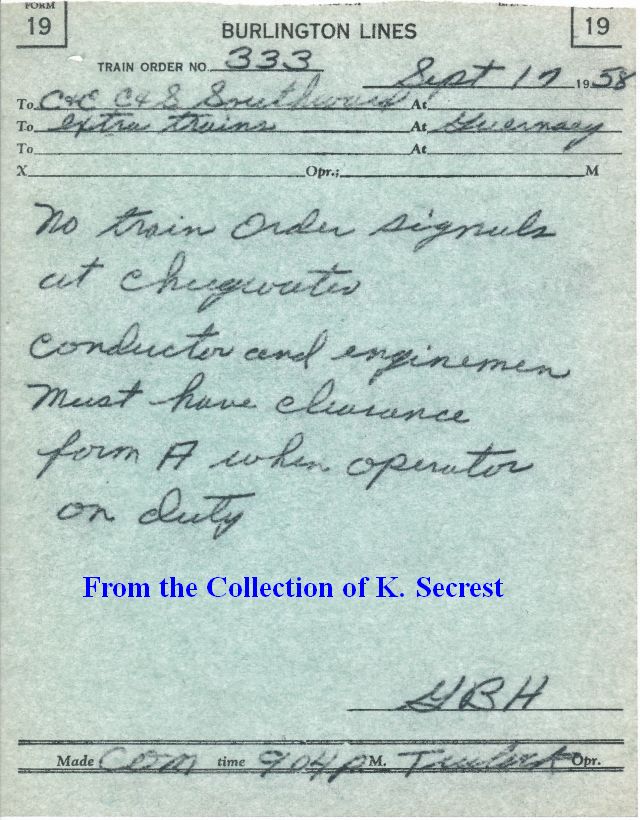 FORM 19
BURLINGTON LINES
19
TRAIN ORDER NO. 333
Sept 17 1958
To C&E C&S Southward At
To extra trains At Guernsey
To At
X Opr.; M
No train order signals
at Chugwater
conductor and enginemen
must have clearance
form A when operator
on duty
From the Collection of K. Secrest
GBH
Made COM time 904 P M. Opr.